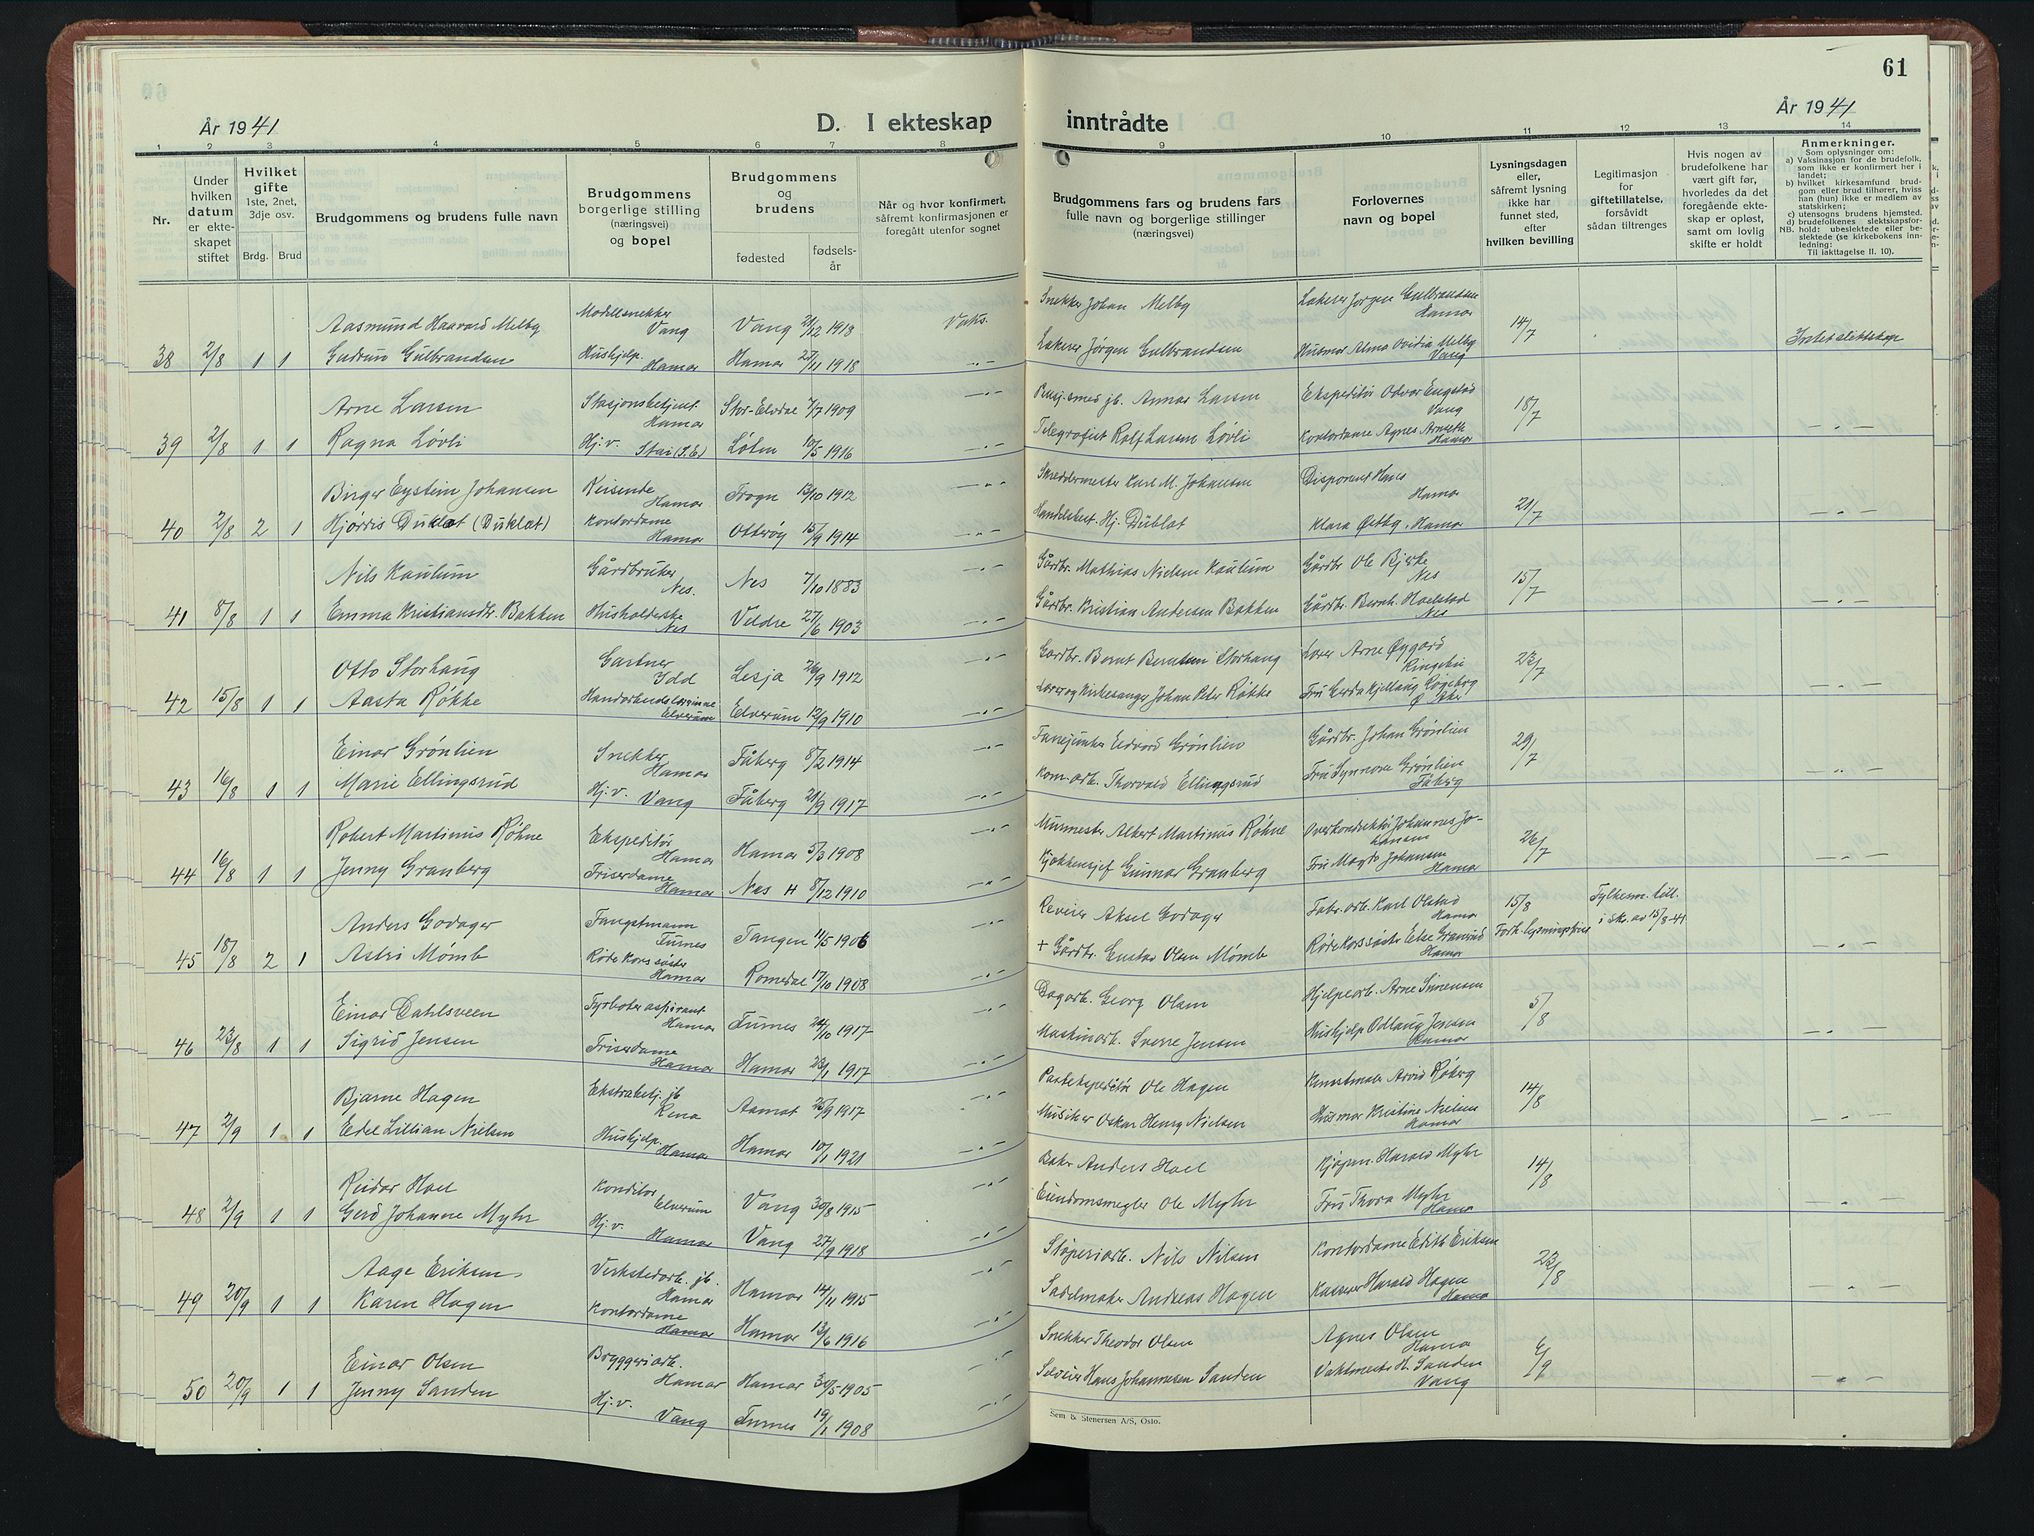 61
År 1941
D. I ekteskap inntrådte
År 1941
1 2 3 4 5 6 7 8 9 10 11 12 13 14
Nr.
Under hvilken datum er ekteskapet stiftet
Hvilket gifte 1ste, 2net, 3dje osv.
Brdg. Brud
Brudgommens og brudens fulle navn
Brudgommens borgerlige stilling (næringsvei) og bopel
Brudgommens og brudens
fødested fødselsår
Når og hvor konfirmert, såfremt konfirmasjonen er foregått utenfor sognet
Brudgommens fars og brudens fars fulle navn og borgerlige stillinger (næringsvei)
Forlovernes navn og bopel
Lysningsdagen eller, såfremt lysning ikke har funnet sted, efter hvilken bevilling
Legitimasjon for giftetillatelse, forsåvidt sådan tiltrenges
Hvis nogen av brudefolkene har vært gift før, hvorledes da det foregående ekteskap er opløst, samt om lovlig skifte er holdt
Anmerkninger.
Som oplysninger om:
a) Vaksinasjon for de brudefolk, som ikke er konfirmert her i landet;
b) hvilket kirkesamfund brudgom eller brud tilhører, hviss han (hun) ikke er medlem av statskirken;
c) utensogns brudens hjemsted.
d) brudefolkenes slektskapsforhold: ubeslektede eller beslektede (se kirkebokens innledning:
NB. Til iakttagelse II. 10).
Aasmund Haavard Melby Modellsnekker Vang Vang 21/12 1913 Vaks. Snekker Johan Melby Lakerer Jørgen Gulbrandsen Hamar 14/7
38 2/8 1 1 Gudrun Gulbrandsen Hushjelp. Hamar Hamar 27/11 1918 -"- Lakerer Jørgen Gulbrandsen Husmor Alma Ovidia Melby Vang Intet slektskap
Arne Larsen Stasjonsbetjent Hamar Stor-Elvdal 7/7 1909 -"- Pensj. smed jb. Annar Larsen Ekspeditør Oddvar Engstad Vang 18/7
39 2/8 1 1 Ragna Løvli Hj.v. Stai (S.E.) Løten 10/5 1916 -"- Telegrafist Rolf Larsen Løvli Kontordame Agnes Hamar -"-
Birger Eystein Johansen Reisende Hamar Frogn 13/10 1912 -"- Skreddermester Karl M. Johansen Disponent Hans Hamar 21/7
40 2/8 2 1 Hjørris Duklæt (Duklæt) Kontordame Hamar Otterøy 15/9 1914 -"- Handelsbest. Hj. Dublæt Klara Østby, Hamar -"-
Nils Kaulum Gårdbruker Nes. Nes 7/10 1883 Gårdbr. Mathias Nielsen Kaulum Gårdbr. Ole Bjerke Nes 15/7
41 8/8 1 1 Emma Kristiansdtr. Bakken Husholderske Nes Veldre 27/6 1903 -"- Gårdbr. Kristian Andersen Bakken Gårdbr. Bernh. Hoelstad Nes -"-
Otto Storhaug Gartner Idd Lesja 26/9 1912 -"- Gårdbr. Bernt Berntsen Storhaug Lærer Arne Øygard Ringebu 23/7
42 15/8 1 1 Aasta Røkke Handarbeidslærerinne Elverum Elverum 12/9 1910 -"- Lærer og Kirkesanger Johan Peter Røkke Fru Gerda Kjellaug -"-
Einar Grønlien Snekker Hamar Fåberg 8/2 1914 -"- Fanejunker Edvard Grønlien Gårdbr. Johan Grønlien 29/7
43 16/8 1 1 Marie Ellingsrud Hj.v. Vang Fåberg 21/9 1917 -"- Kom. arb. Thorvald Ellingsrud Fru Synnøve Grønlien Fåberg -"-
Robert Martinus Røhne Ekspeditør Hamar Hamar 5/3 1908 -"- Murmester Albert Martinus Røhne Overkonduktør Johannes Johansen 26/7
44 16/8 1 1 Jenny Granberg Friserdame Hamar Nes H 8/12 1910 -"- Kjøkkensjef Gunnar Granberg Fru Magda Johansen Hamar -"-
Anders Godager Fangstmann Furnes Tangen 11/5 1906 -"- Revier Aksel Godager Fabr. arb. Karl Olstad Hamar 15/8 Fylkesm. till. i skr. av 15/8-41
45 18/8 2 1 Astri Mømb Røde Kors søster Hamar Romedal 17/10 1908 -"- + Gårdbr. Gustav Olsen Mømb Røde Korssøster Else Granrud Hamar Fork. lysningsfrist -"-
Einar Dahlsveen Fyrbøter aspirant Hamar Furnes 24/10 1917 -"- Dagarb. Georg Olsen Hjelpearb. Arne Simensen 5/8
46 23/8 1 1 Sigrid Jensen Friserdame Hamar Hamar 23/1 1917 -"- Maskinarb. Sverre Jensen Hushjelp Odlaug Jensen Hamar -"-
Bjarne Hagen Ekstrabetj. jb Rena Aamot 25/9 1917 -"- Pakkekspeditør Ole Hagen Kunstmaler Arvid Røberg 14/8
47 2/9 1 1 Edel Lillian Nielsen Hushjelp. Hamar Hamar 10/1 1921 -"- Musiker Oskar Henry Nielsen Husmor Kristine Nielsen Hamar -"-
Reidar Hoel Konditor Elverum Vang 30/8 1915 -"- Baker Anders Hoel Kjøpm. Harald Myhr 14/8
48 2/9 1 1 Gerd Johanne Myhr Hj.v. Hamar Vang 27/9 1918 -"- Eiendomsmegler Ole Myhr Fru Thora Myhr Hamar -"-
Aage Eriksen Verkstedarb. jb. Hamar Hamar 14/11 1915 -"- Støperiarb. Nils Nilsen Kontordame Edith Eriksen 23/8
49 20/9 1 1 Karen Hagen Kontordame Hamar Hamar 13/6 1916 -"- Sadelmaker Andreas Hagen Kasserer Harald Hagen Hamar -"-
Einar Olsen Bryggeriarb. Hamar Hamar 30/5 1905 -"- Snekker Theodor Olsen Agnes Olsen Hamar 6/9
50 20/9 1 1 Jenny Sanden Hj.v. Vang Furnes 19/1 1908 -"- Selveier Hans Johannesen Sanden Vaktmester H. Sanden Vang -"-
Sem & Stenersen A/S, Oslo.